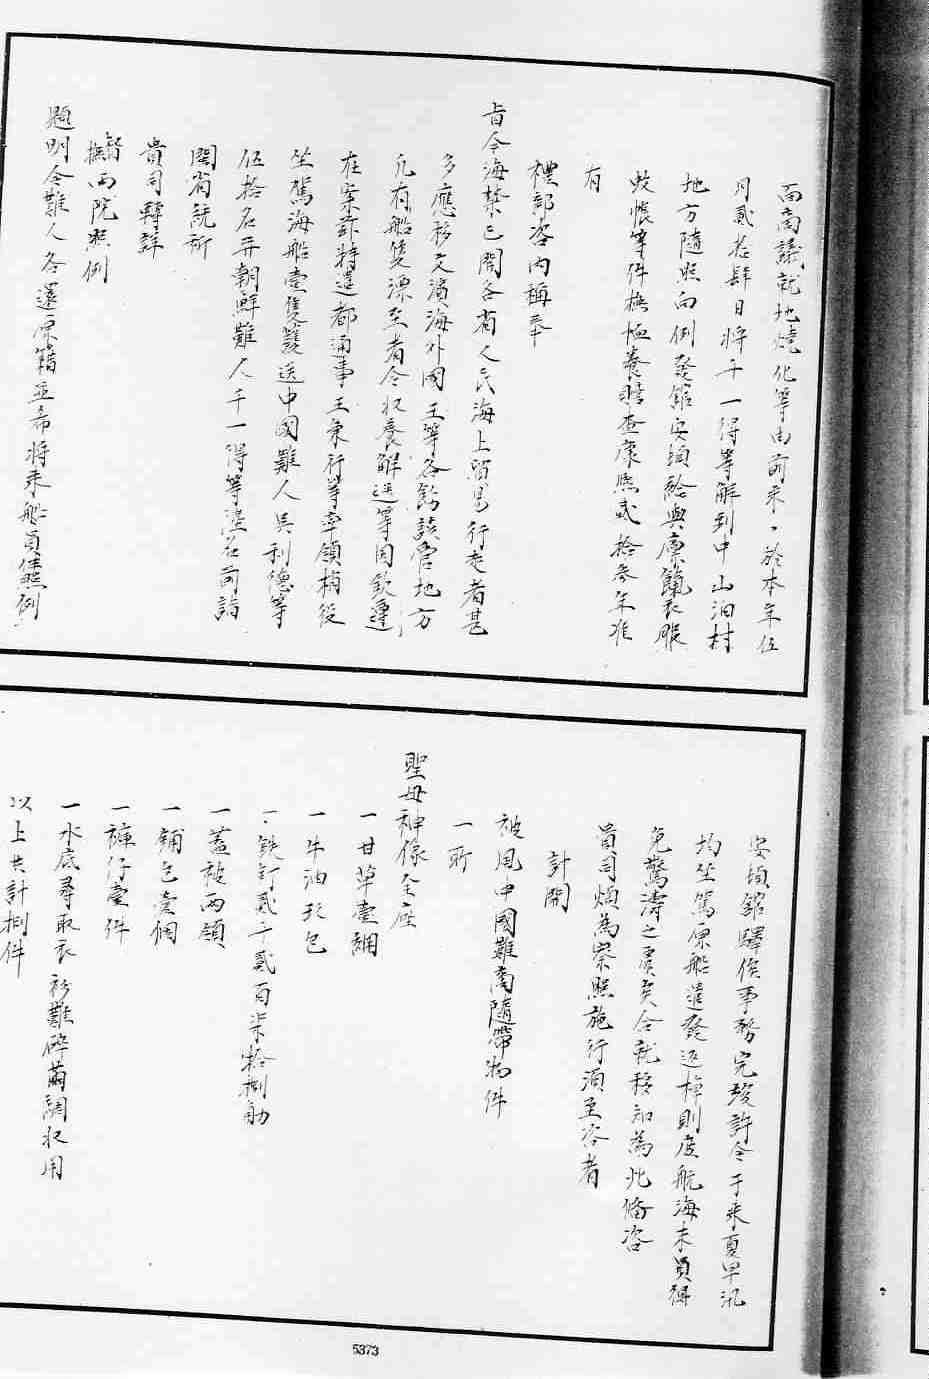 面商議就地燒化等由前來、於本年伍
月貳拾肆日將千一得等解到中山泊村
地方隨照向例發館安頓給與廩餼衣服
蚊帳等件撫恤養贍查康熙貳拾參年准
有
禮部咨內稱奉
旨今海禁已開各省人民海上貿易行走者甚
多應移文濱海外國王等各飭該管地方
凡有船隻漂至者令收養解送等因欽遵
在案茲特遣都通事王秉行等率領梢役
坐駕海船壹隻護送中國難人吳利德等
伍拾名并朝鮮難人千一得等名前詣
閩省統祈
貴司轉詳
督
撫兩院照例
題明令難人各還原籍並希將來船員伴照例
安頓館驛俟事務完竣許令于來夏早汛
均坐駕原船遣發返棹則度航海末員得
免驚濤之虞矣合就移知為此備咨
貴司煩為察照施行須至咨者
計開
被風中國難商隨帶物件
一所
聖母神像全座
一甘草壹綑
一牛油玖包
一鉄釘貳千貳百柒拾捌觔
一蓋被兩領
一鋪包壹個
一褲仔壹件
一水底尋取衣衫難碎繭綢收用
以上共計捌件
5373